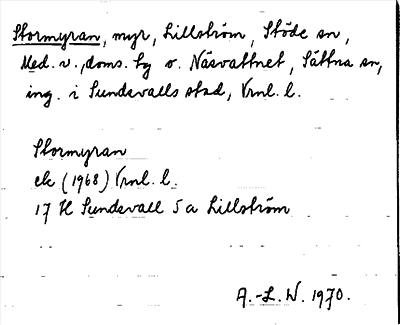 Stormyran, myr, Lillström, Stöde sn,
Med. v. doms. by o. Näsvattnet, Sättna sn,
ing. i Sundsvalls stad, Vrnl. l.
Stormyran
ek (1968) Vrnl. l.
17 H Sundsvall 5 a Lillström
A.-L. W. 1970.